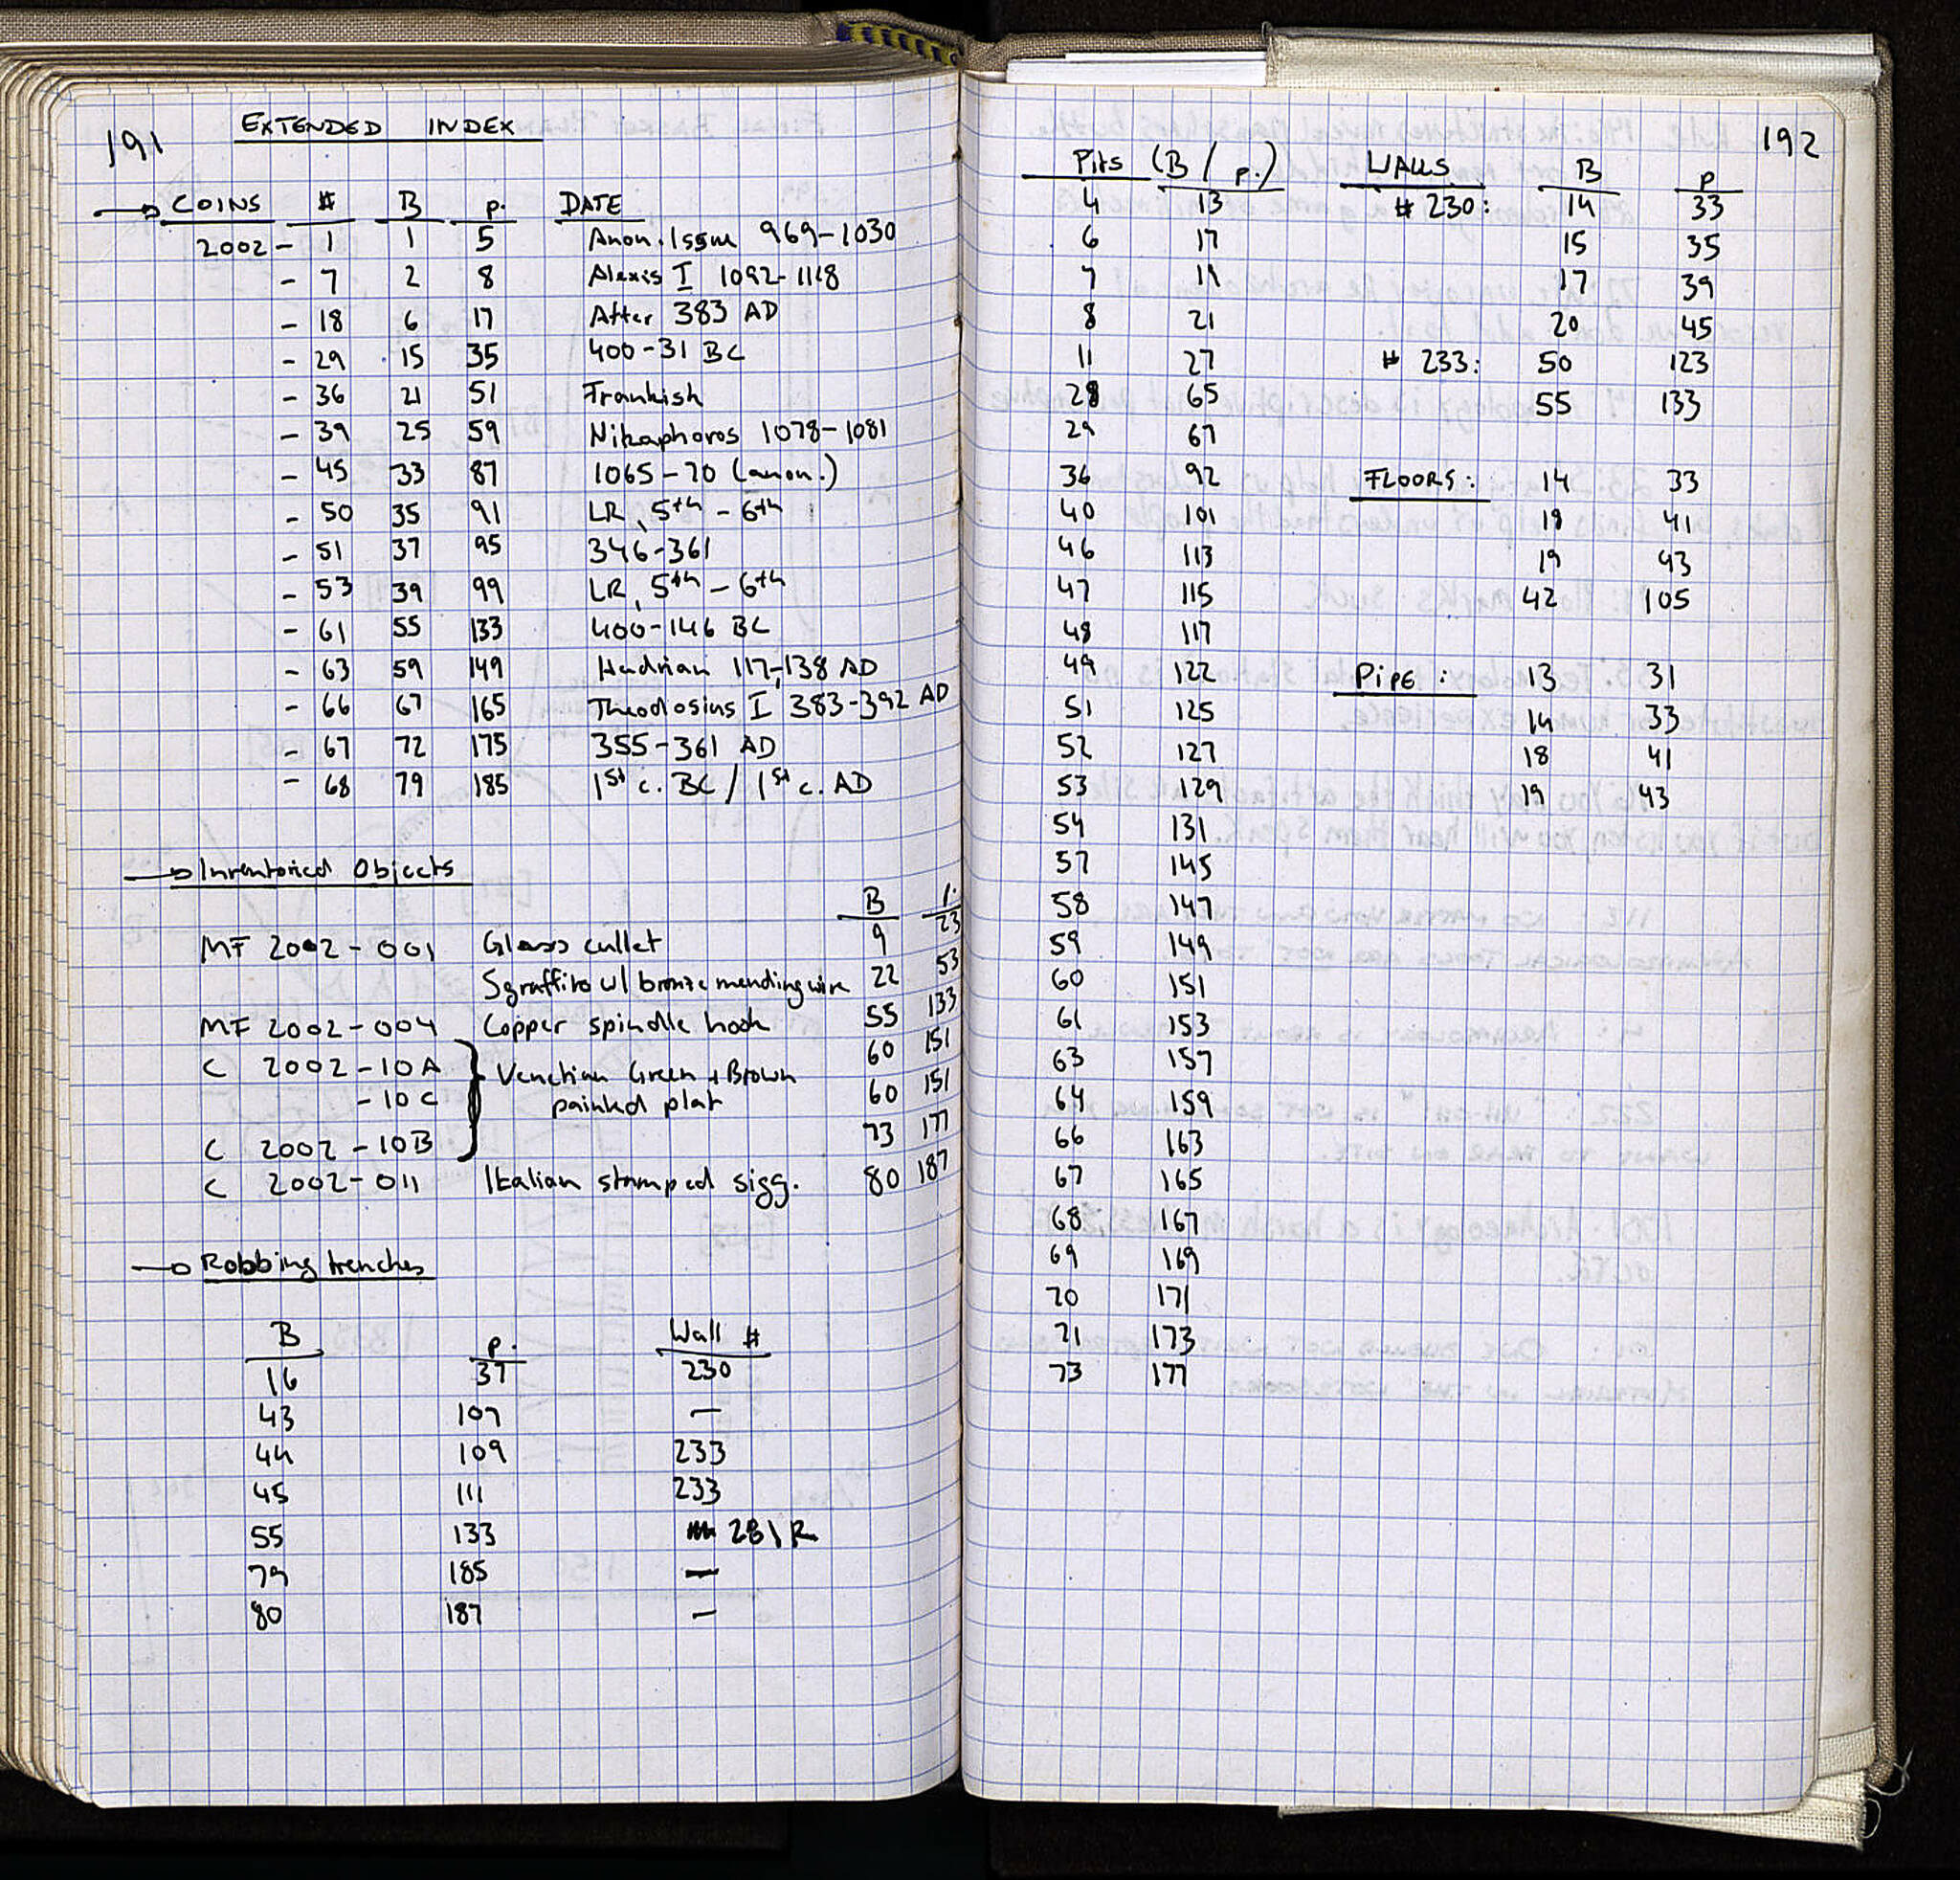 191
EXTENDED INDEX
→ COINS # B p. DATE
2002 - 1 1 5 Anon. Issue 969-1030
- 7 2 8 Alexis I 1092-1118
- 18 6 17 After 383 AD
- 29 15 35 400-31 BC
- 36 21 51 Frankish
- 39 25 59 Nikaphoros 1078-1081
- 45 33 87 1065-70 (anon.)
- 50 35 91 LR, 5th - 6th
- 51 37 95 346-361
- 53 39 99 LR, 5th - 6th
- 61 55 133 400-146 BC
- 63 59 149 Hadrian 117-138 AD
- 66 67 165 Theodosius I 383-392 AD
- 67 72 175 355-361 AD
- 68 79 185 1st c. BC / 1st c. AD
→ Inventoried Objects
B p.
MF 2002-001 Glass cullet 9 23
Sgraffito w/ bronze mending wire 22 53
MF 2002-004 Copper spindle hook 55 133
C 2002-10A } Venetian Green + Brown 60 151
-10C painted plat 60 151
C 2002-10B 73 177
C 2002-011 Italian stamped sigg. 80 187
→ Robbing trenches
B p. Wall #
16 37 230
43 107 —
44 109 233
45 111 233
55 133 281 R
79 185 —
80 187 —
192
Pits (B / p.)
4 13
6 17
7 19
8 21
11 27
28 65
29 67
36 92
40 101
46 113
47 115
48 117
49 122
51 125
52 127
53 129
54 131
57 145
58 147
59 149
60 151
61 153
63 157
64 159
66 163
67 165
68 167
69 169
70 171
71 173
73 177
WALLS B p
# 230: 14 33
15 35
17 39
20 45
# 233: 50 123
55 133
FLOORS: 14 33
18 41
19 43
42 105
PIPE: 13 31
14 33
18 41
19 43